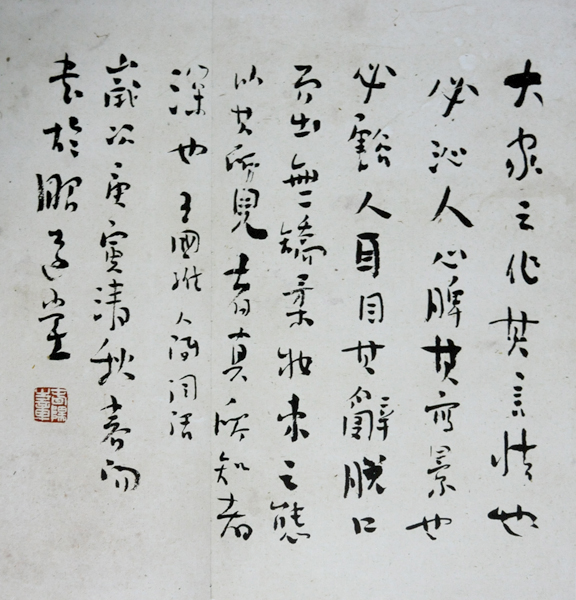 大家之作其言情也
必沁人心脾其寫景也
必豁人耳目其辭脫口
而出無矯柔妝束之態
以其所見者真所知者
深也王國維人間詞話
歲次庚寅清秋
書於